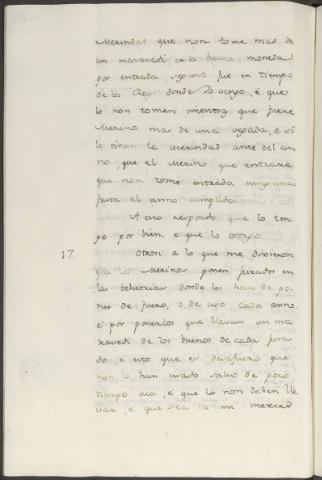 Merindat que non tome mas de
un maravedi de la buena moneda
por entrada, segunt fue en tiempo
de los Reys donde Yo vengo, é que
lo non tomen mientra que fuere
Merino mas de una vegada, é si
le tiran la merindad ante del an
no, que el Merino que entrare
que non tome entrada ninguna
fasta el anno cumplido.
A esto respondo que lo ten
go por bien, e que lo otorgo.
17. Otrosi a lo que me dixieron
que los Merinos ponen jurados en
las behetrias donde los han de po
ner de fuero, o de uso cada anno,
é por ponerlos que llevan un ma
ravedi de los buenos de cada jura
do, é esto que es desafuero que
non lo han usado salvo de poco
tiempo acá, é que lo non deben lle
var, é que sea la mi merced